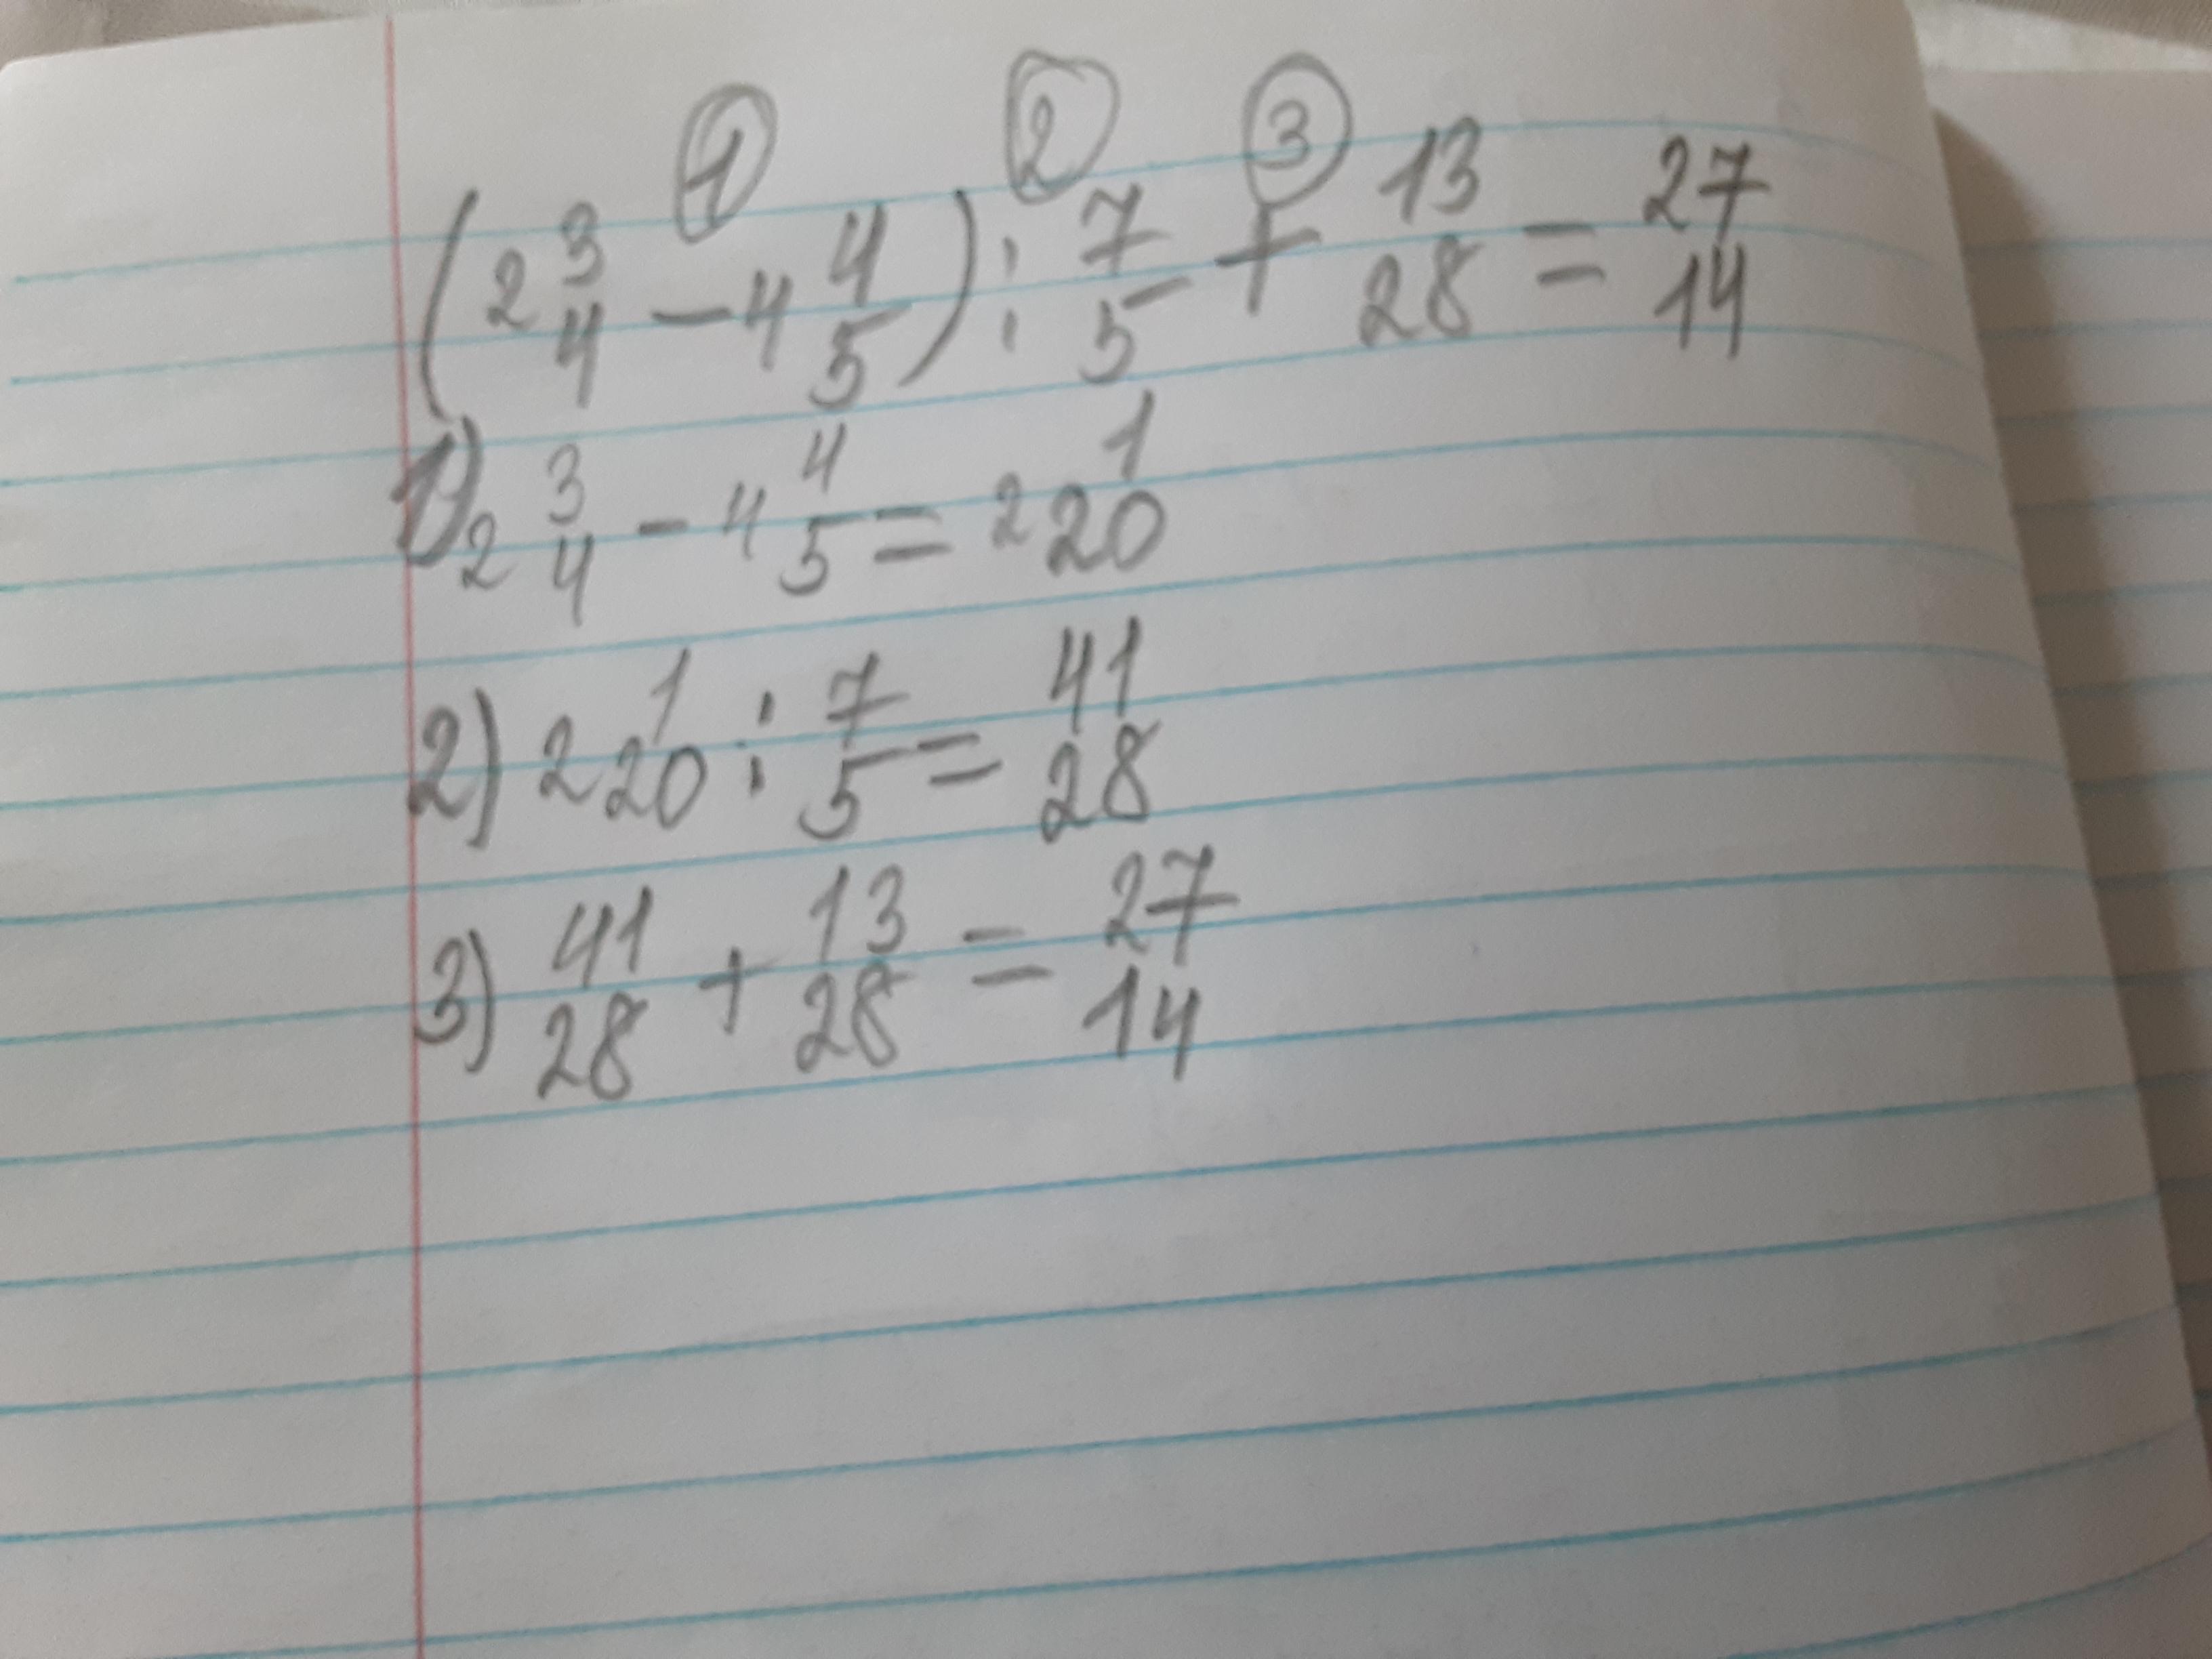 ① ② ③
(2 3/4 - 4 4/5) : 7/5 + 13/28 = 27/14
1) 2 3/4 - 4 4/5 = 2 1/20
2) 2 1/20 : 7/5 = 41/28
3) 41/28 + 13/28 = 27/14